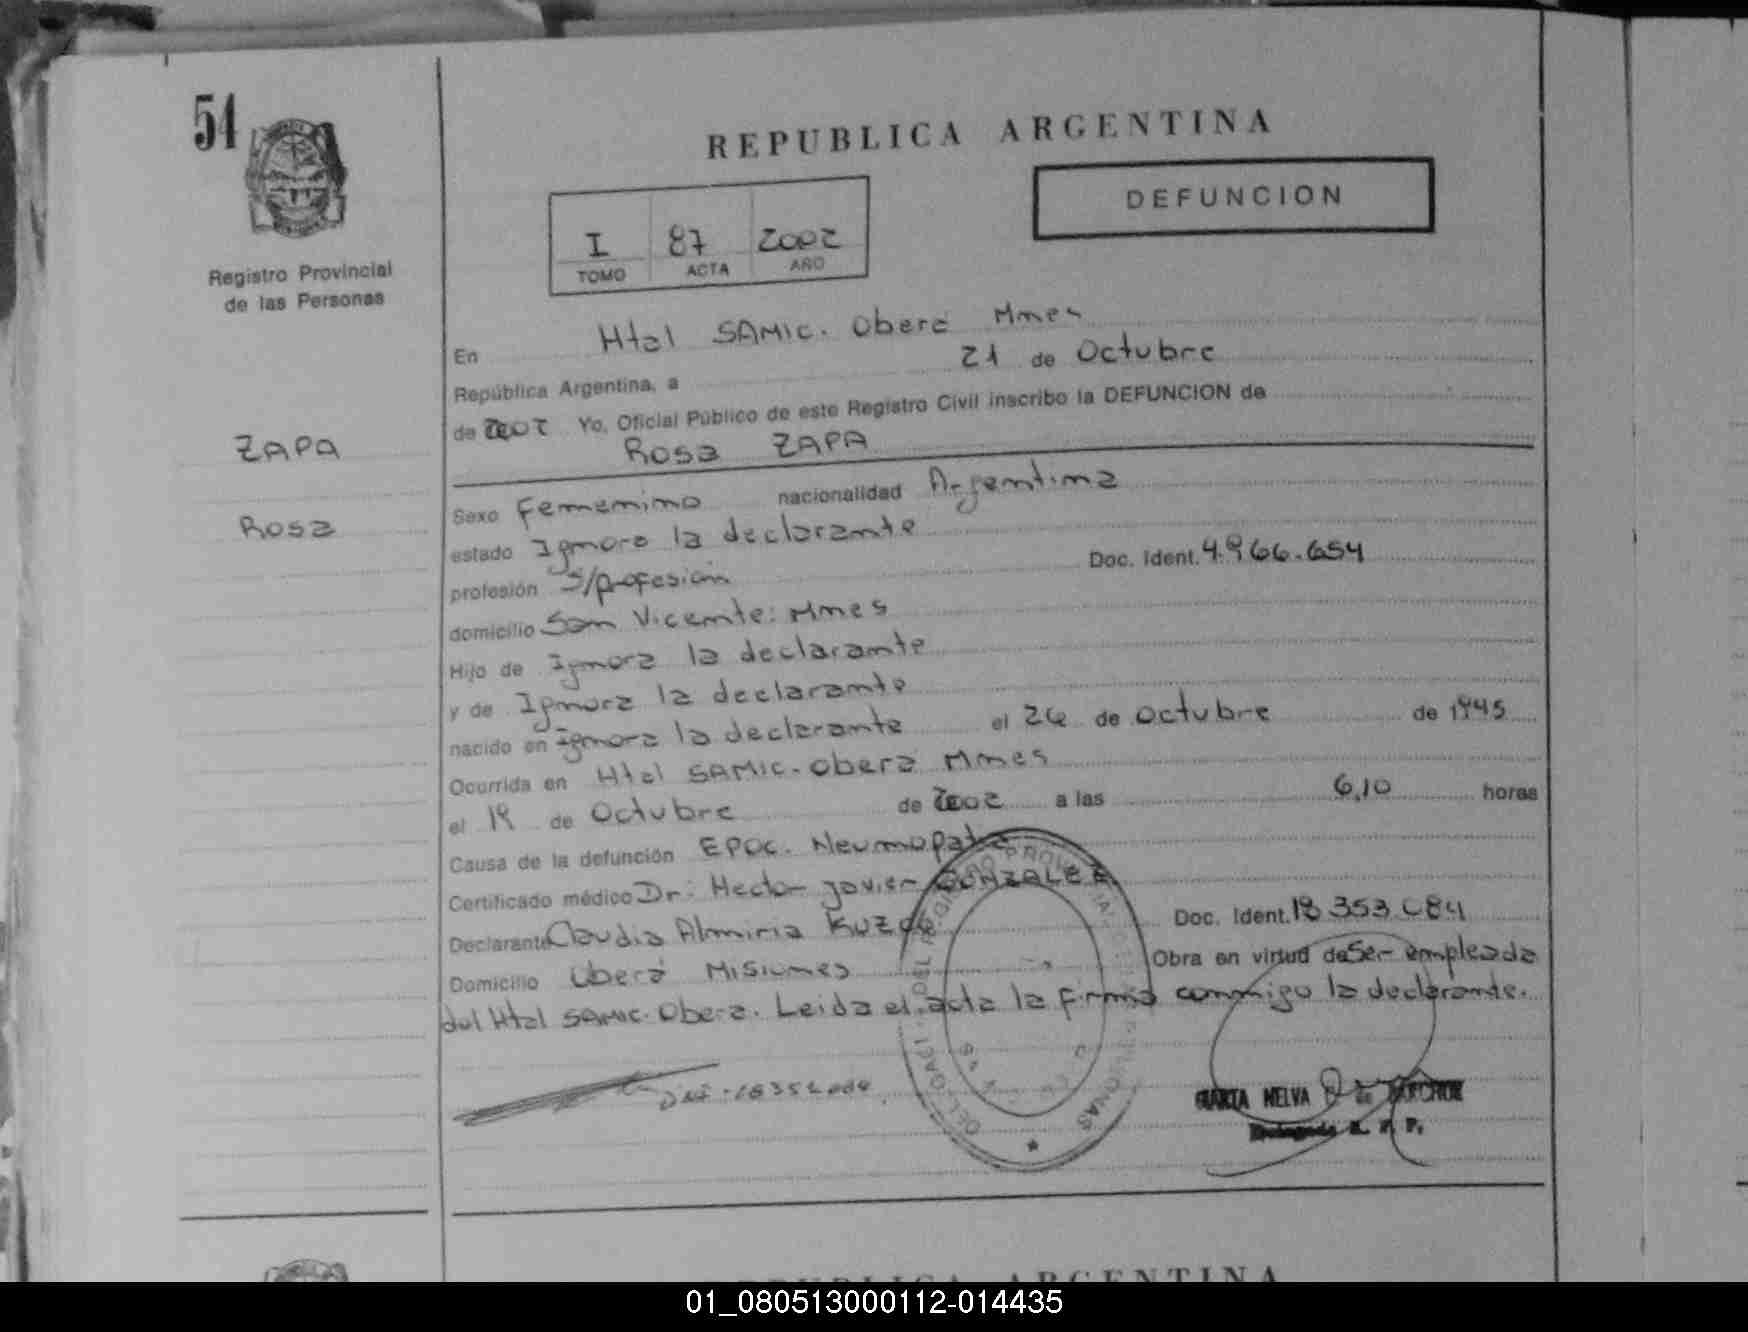 54
REPUBLICA ARGENTINA
DEFUNCION
I 87 2002
TOMO ACTA AÑO
Registro Provincial
de las Personas
ZAPA
Rosa
En Htal SAMIC. Oberá Mnes
República Argentina, a 21 de Octubre
de 2002 Yo, Oficial Público de este Registro Civil inscribo la DEFUNCION de
Rosa ZAPA
Sexo Femenino nacionalidad Argentina
estado Ignora la declarante
profesión S/profesión Doc. Ident. 4.966.654
domicilio San Vicente: Mnes
Hijo de Ignora la declarante
y de Ignora la declarante
nacido en Ignora la declarante el 26 de Octubre de 1945
Ocurrida en Htal SAMIC. Oberá Mnes
el 19 de Octubre de 2002 a las 6,10 horas
Causa de la defunción EPOC. Neumopatía
Certificado médico Dr: Hector Javier GONZALEZ
Declarante Claudia Almiria Doc. Ident. 18 353 084
Domicilio Oberá Misiones Obra en virtud de Ser empleada
del Htal SAMIC. Oberá. Leida el acta la firma conmigo la declarante.
REGISTRO PROVINCIAL
PERSONAS
MARTA NELVA
Delegada R. P. P.
REPUBLICA ARGENTINA
01_080513000112-014435